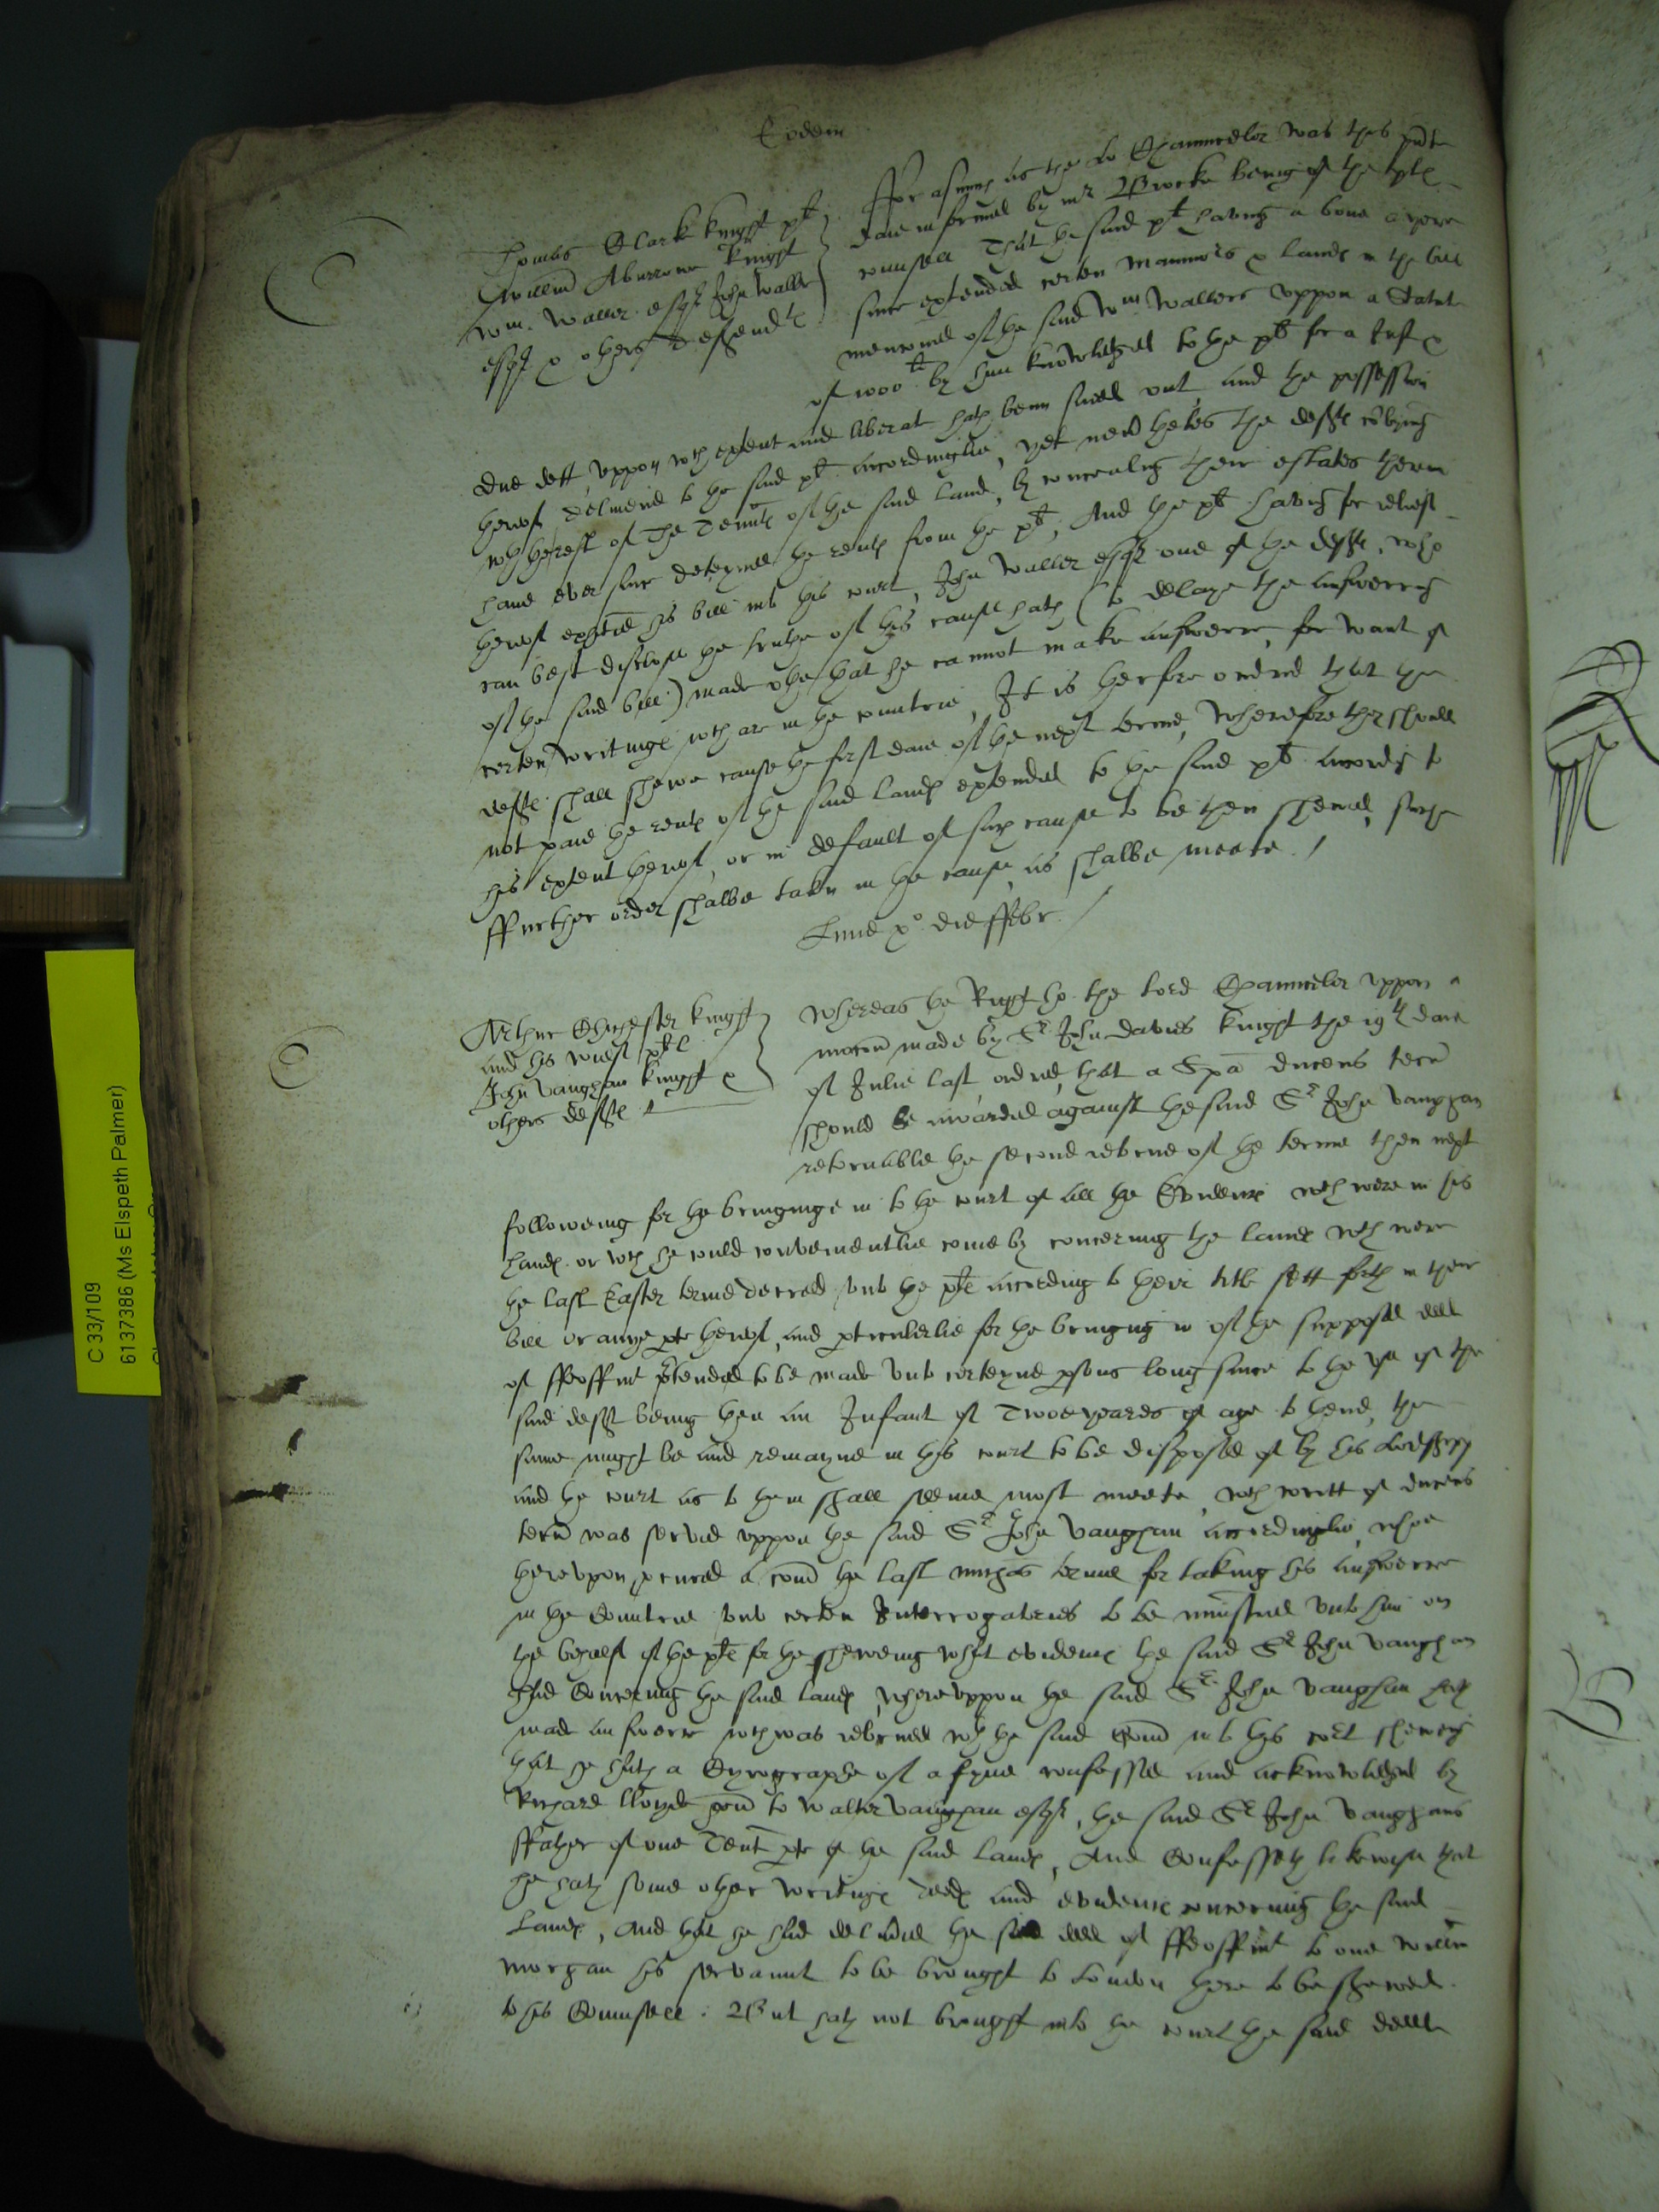 Eodem
Thomas Clark knight plt
William Aburrowe knight
Wm. Waller esqr John Waller
esqr & others deffendtes
For asmuch as the Lo Chauncelor was this pnte
daie informed by mr Brocke being of the pltes
counsell That the said plt having above a yere
since extended certen mannors & landes in the bill
mencioned of the said Wm Wallers uppon a Statut
of 1000li by him knowledged to the plt for a just &
due dett, uppon wch extent and liberat hath benn sued out, and the possession
therof delivered to the said plt accordinglie, yet nevertheles the defftes
wth the rest of the Tennts of the said land, by concealing their estates therin
have ever since deteyned the rentes from the plt, And the plt having for relief
therof exhited his bill into this court, John Waller esqr one of the defftes, who
can best disclose the truthe of this cause hath (to delaye the answering
of the said bill) made othe that he cannot make answere, for want of
certen writinges wch are in the countrie, It is therfore ordred that the
defftes shall shewe cause the first daie of the next terme, wherefore they should
not paie the rentes of the said landes extended to the said plt according to
his extent therof, or in default of such cause to be then shewed, such
ffurther order shalbe taken in the cause as shalbe meete /
Lune xo die ffebr /
Arthur Chichester knight
and his wief pltes
John Vaughan knight &
others defftes
Whereas the Right ho. the Lord Chauncelor uppon a
mocion made by Sr John Davies knight the 19th daie
of Julie last ordred, that a Spa ducens tecu
should be awarded against the said Sr John Vaughan
retornable the second retorne of the terme then next
following for the bringinge in to the court of all the Evidence wch were in his
handes or wch he could convenientlie come by concerning the landes wch were
the last Easter terme decreed unto the pltes according to their title sett forth in their
bill or anye pte therof, and pticulerlie for the bringing in of the supposed deed
of ffeoffmt ptended to be made unto certeyne psons long since to the use of the
said defft being then an Infant of Twoe yeares of age to thend, the
same might be and remayne in this court to be disposed of by his Lordshipp
and the court as to them shall seeme most meete, wch writt of ducens
tecu was served uppon the said Sr John Vaughan accordinglie, whoe
therevpon, pcured a comn the last michas terme for taking his answere
in the Countrie unto certen Interrogatories to be ministred unto him on
the behalf of the pltes for the shewing what evidence the said Sr John Vaughan
had concerning the said landes, whereuppon the said Sr John Vaughan hath
made answere wch was retorned wth the said Comn into this cort shewing
that he hath a Cyrographe of a fyne confessed and acknowledged by
Richard lloyde gen to Walter Vaughan esqr, the said Sr John Vaughans
ffather of one Tent pte of the said landes, And Confesseth likewise that
he hath some other writinges deedes and evidence concerning the said
landes, And that he had delivred the said deed of ffeoffmt to one Willm
Morgan his servaunt to be brought to London here to be shewed
to his Counsell. But hath not brought into the court the said deede
C 33/109
6137386 (Ms Elspeth Palmer)